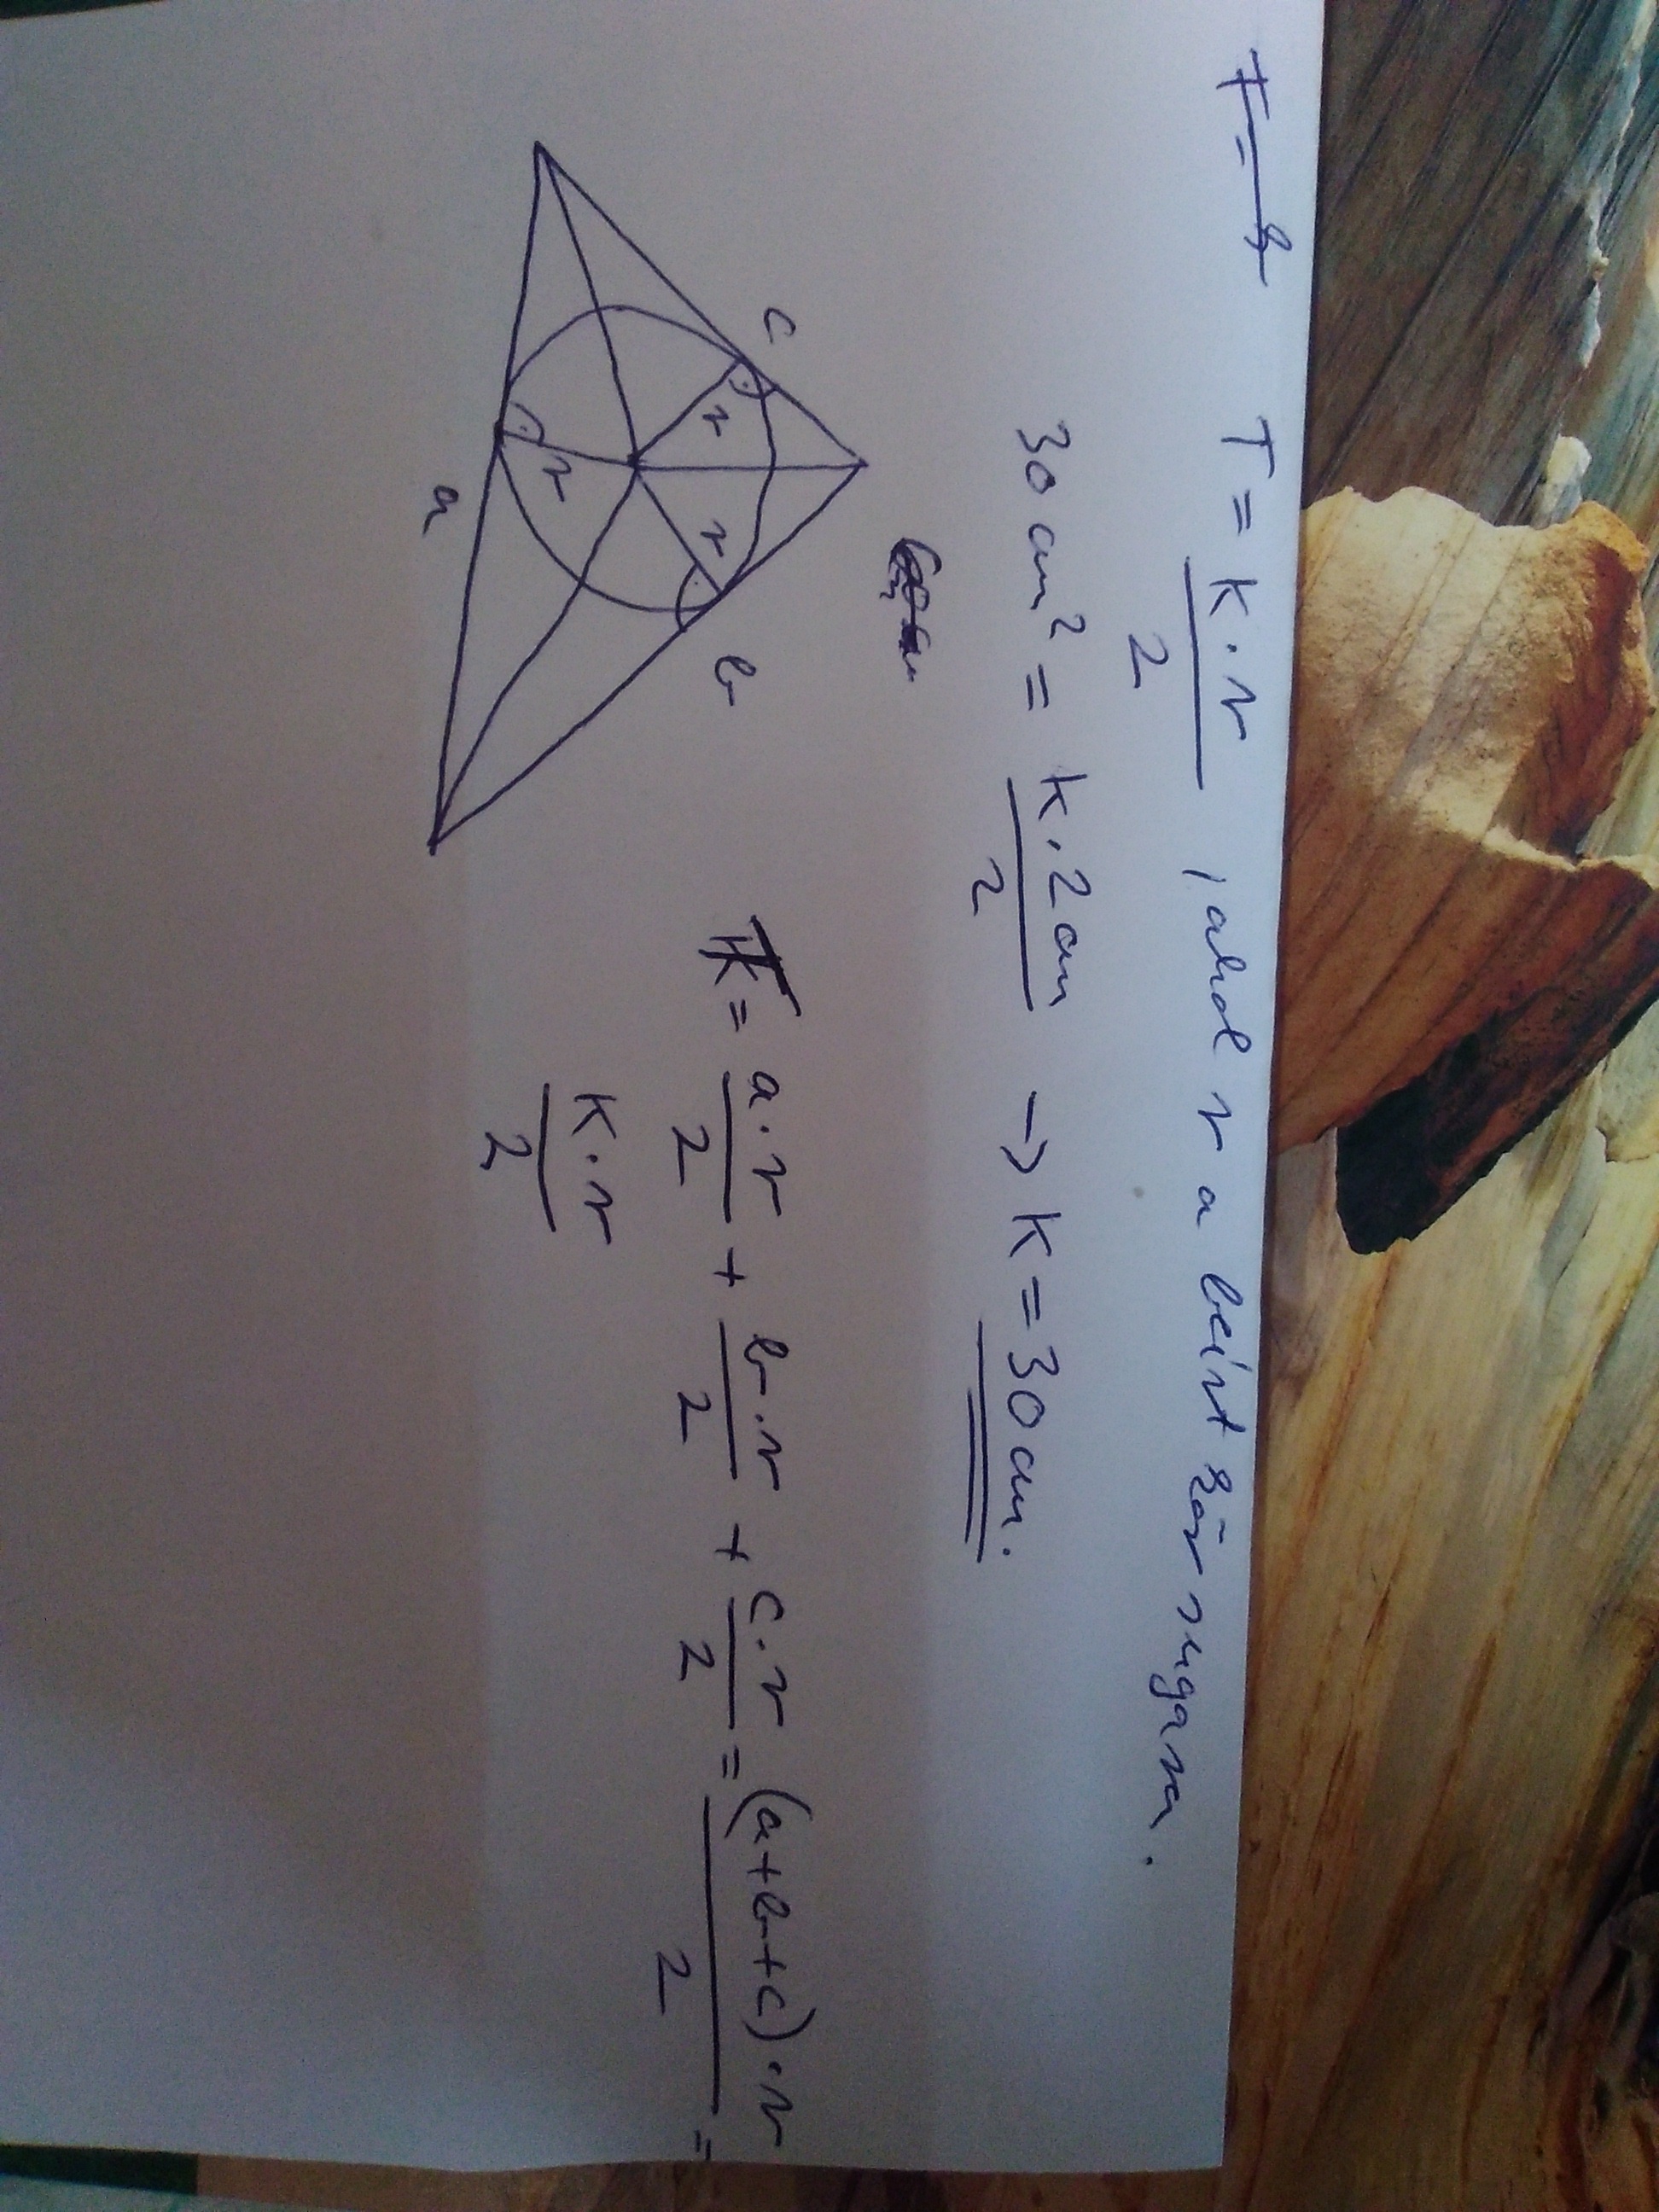 T = K·r / 2 , ahol r a beírt kör sugara.
30 cm² = K·2cm / 2 → K = 30 cm.
c
b
r
r
r
a
T = a·r / 2 + b·r / 2 + c·r / 2 = (a+b+c)·r / 2 =
K·r / 2